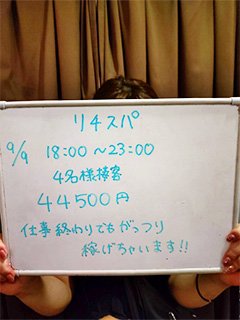 リ4スパ
9/9 18:00〜23:00
4名様接客
44500円
仕事終わりでもがっつり
稼げちゃいます!!